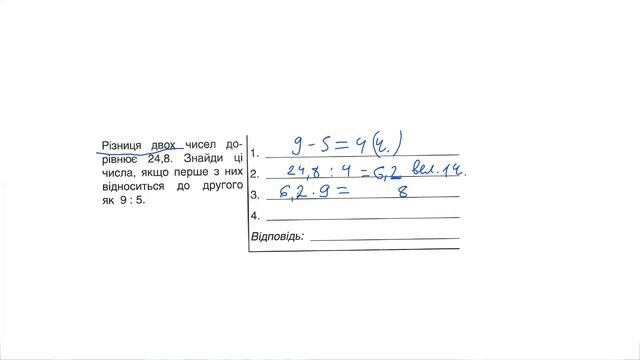 Різниця двох чисел до-
рівнює 24,8. Знайди ці
числа, якщо перше з них
відноситься до другого
як 9 : 5.
1. 9 - 5 = 4 (ч.)
2. 24,8 : 4 = 6,2 вел. 1 ч.
3. 6,2 · 9 = 8
4.
Відповідь: